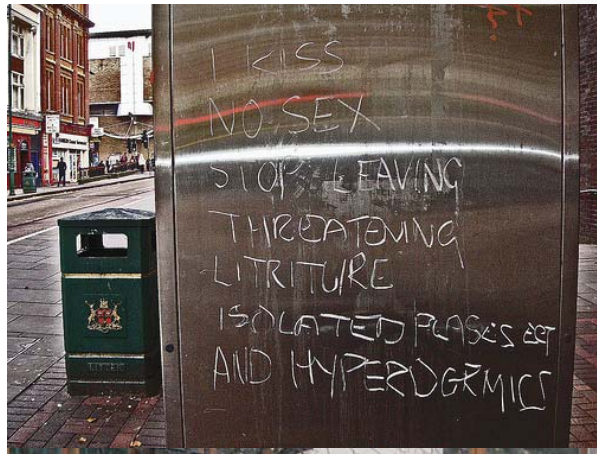 I KISS
NO SEX
STOP LEAVING
THREATENING
LITRITURE
ISOLATED PLASES ECT
AND HYPERDGRMICS